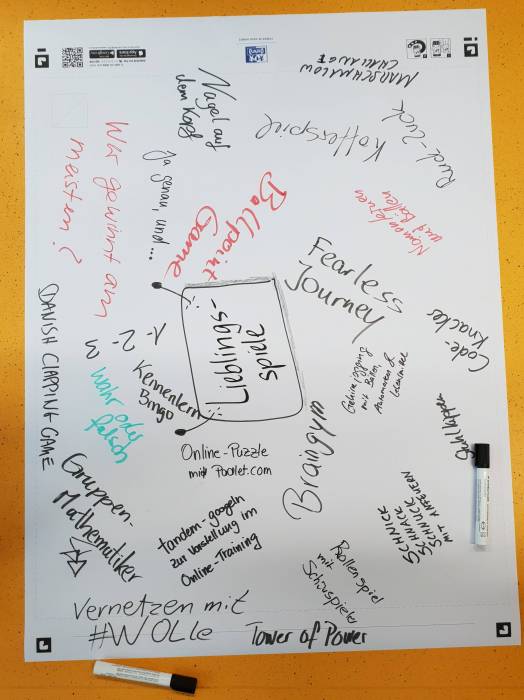 MARSCHMALOW
CHALLANGE
Nagel auf
dem Kopf
Kofferspiel
Ruck-Zuck
Wer gewinnt am
meisten?
Ja genau, und...
Ballpoint
Game
Fearless
Journey
Code-
Knacker
DANISH CLAPPING GAME
1-2-3
Lieblings-
spiele
Kennenlern
Bingo
wahr oder
falsch
Online-Puzzle
mit Padlet.com
Braingym
SCHNICK
SCHNACK
SCHNUCK
MIT ANFEUERN
Gruppen-
Mathematiker
tandem-googeln
zur Vorstellung im
Online-Training
Rollenspiel
mit
Schauspieler
Vernetzen mit
#WOLLe
Tower of Power